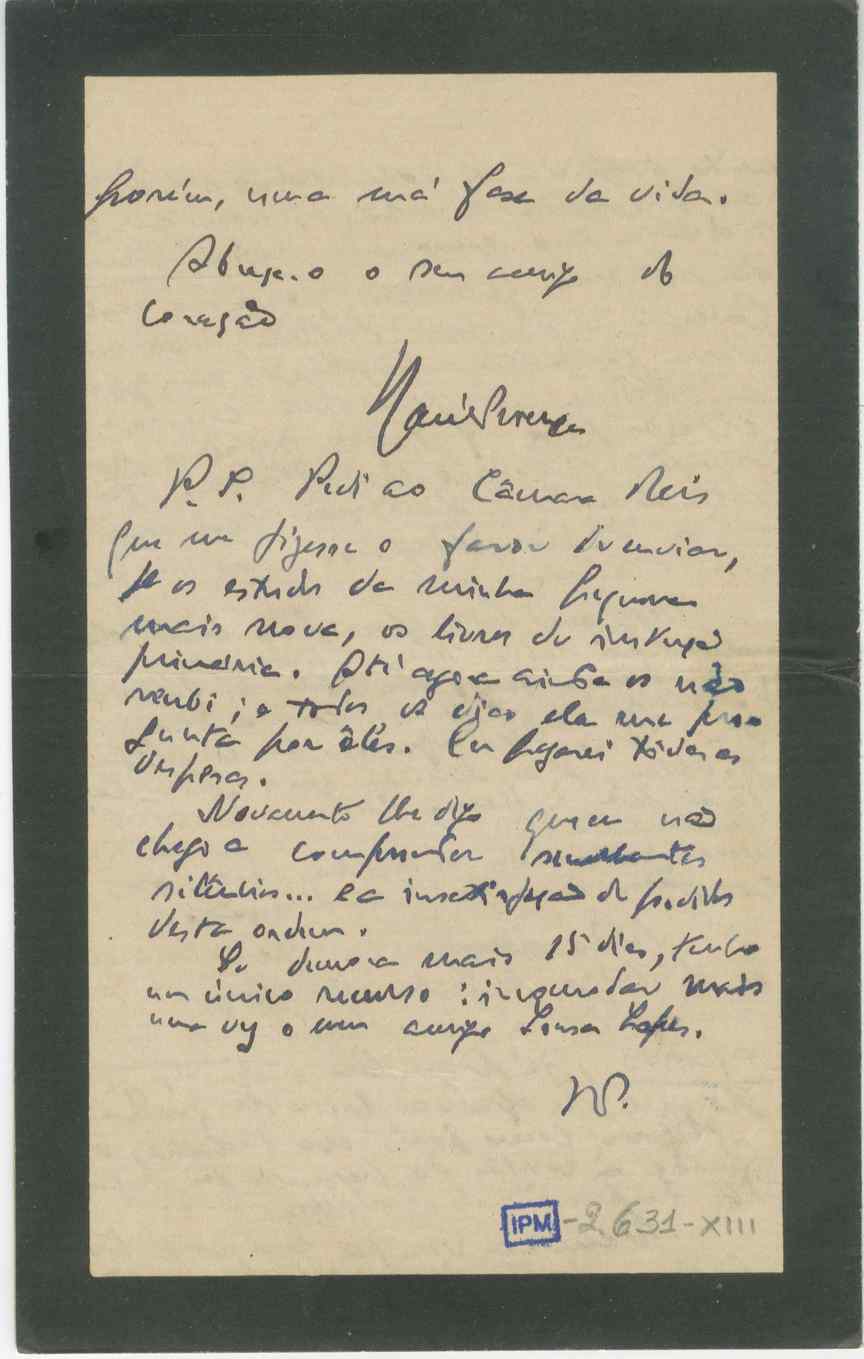 porém, uma má fase da vida.
Abraça-o o seu amigo do
coração
P.S. Pedi ao Câmara Reis
que me fizesse o favor de enviar,
os estudos da minha pequena
mais nova, os livros de instrução
primária. Até agora ainda os não
recebi; e todos os dias ela me per
gunta por êles. Eu pagarei tôdas as
despesas.
Novamente lhe digo que eu não
chego a compreender semelhantes
silêncios... e a insatisfação de pedidos
desta ordem.
Se demora mais 15 dias, tenho
um único recurso: incomodar mais
uma vez o meu amigo Sousa Lopes.
IPM-2631-XIII